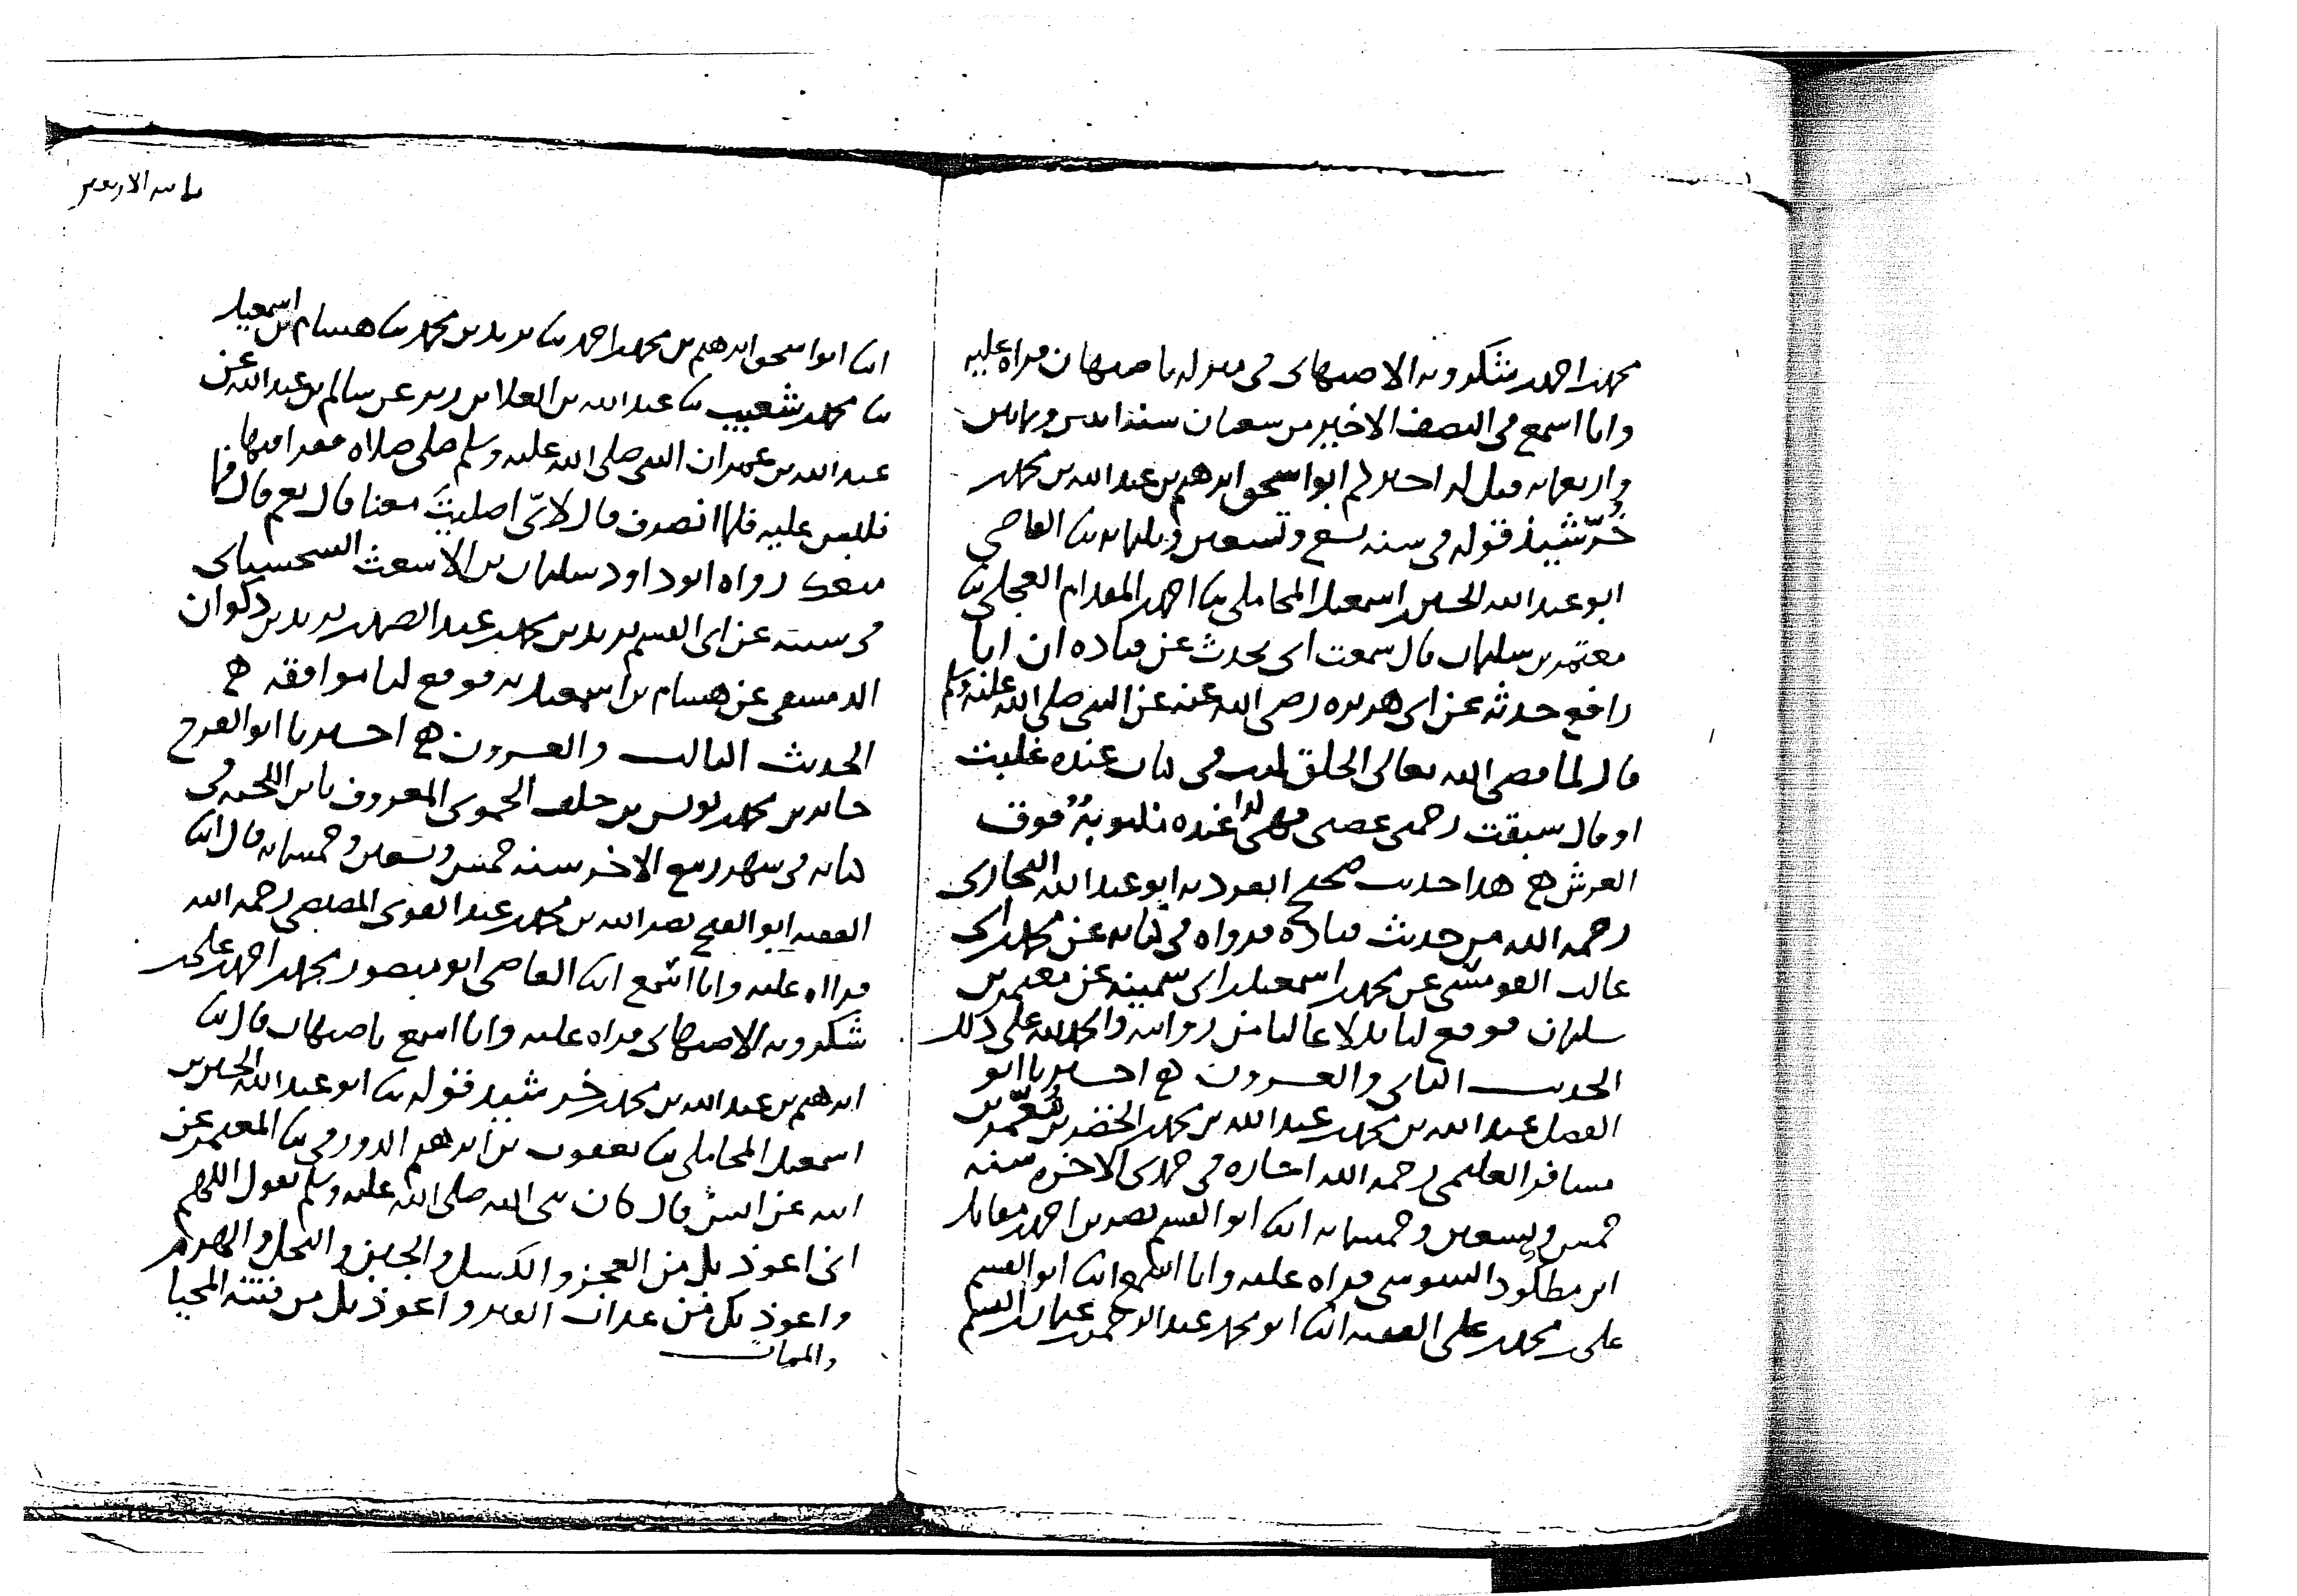 محمد بن احمد بن شكرويه الاصبهاني في منزله باصبهان قراة عليه
وانا اسمع في النصف الاخير من شعبان سنة اثنتين وثمانين
واربعمائة قيل له اخبركم ابو اسحق ابرهيم بن عبد الله بن محمد
خُرّشيذ قوله في سنة تسع وتسعين وثلثمائة ثنا القاضي
ابو عبد الله الحسين بن اسمعيل المحاملي ثنا احمد بن المقدام العجلي ثنا
معتمر بن سليمان قال سمعت ابي يحدث عن قتادة ان ابا
رافع حدثه عن ابي هريرة رضي الله عنه عن النبي صلى الله عليه وسلم
قال لما قضى الله تعالى الخلق كتب في كتاب عنده غلبت
او قال سبقت رحمتي غضبي فهي عنده مكتوبة فوق
العرش هذا حديث صحيح انفرد به ابو عبد الله البخاري
رحمه الله من حديث قتادة فرواه في كتابه عن محمد بن ابي
غالب القومسي عن محمد بن اسمعيل بن ابي سمينة عن معتمر بن
سليمان فوقع لنا بدلا عاليا من روايته والحمد لله على ذلك
الحديث الثاني والعشرون اخبرنا ابو
الفضل عبد الله بن محمد بن عبد الله بن محمد الخضر بن مُعمّر بن
مسافر العليمي رحمه الله اجازه في جمدى الاخرة سنة
خمس وتسعين وخمسمائة انبا ابو القسم نصر بن احمد بن مقاتل
ابن مطكود السوسي قراة عليه وانا اسمع انبا ابو القسم
علي بن محمد بن علي الفقيه انبا ابو محمد عبد الرحمن بن عثمان بن القسم
ثامنه الاربعين
انبا ابو اسحق ابرهيم بن محمد بن احمد ثنا يزيد بن محمد ثنا هشام بن اسمعيل
ثنا محمد بن شعيب ثنا عبد الله بن العلا بن زبر عن سالم بن عبد الله عن
عبد الله بن عمر ان النبي صلى الله عليه وسلم صلى صلاة فقرا فيها
فلبس عليه فلما انصرف قال لاُبيّ اصليت معنا قال نعم قال فما
منعك رواه ابو داود سليمان بن الاشعث السجستاني
في سننه عن ابي القسم يزيد بن محمد بن عبد الصمد بن يزيد بن ذكوان
الدمشقي عن هشام بن اسمعيل به فوقع لنا موافقة
الحديث الثالث والعشرون اخبرنا ابو الفرج
جابر بن محمد بن يونس بن خلف الحموي المعروف بابن اللحية في
كتابه في شهر ربيع الاخر سنة خمس وتسعين وخمسمائة قال انبا
الفقيه ابو الفتح نصر الله بن محمد بن عبد القوي المصيصي رحمه الله
قراة عليه وانا اسمع انبا القاضي ابو منصور محمد بن احمد بن علي بن
شكرويه الاصبهاني قراة عليه وانا اسمع باصبهان قال ثنا
ابرهيم بن عبد الله بن محمد خرشيد قوله ثنا ابو عبد الله الحسين بن
اسمعيل المحاملي ثنا يعقوب بن ابرهيم الدورقي ثنا المعتمر عن
ابيه عن انس قال كان نبي الله صلى الله عليه وسلم يقول اللهم
اني اعوذ بك من العجز والكسل والجبن والبخل والهرم
واعوذ بك من عذاب القبر واعوذ بك من فتنة المحيا
والممات